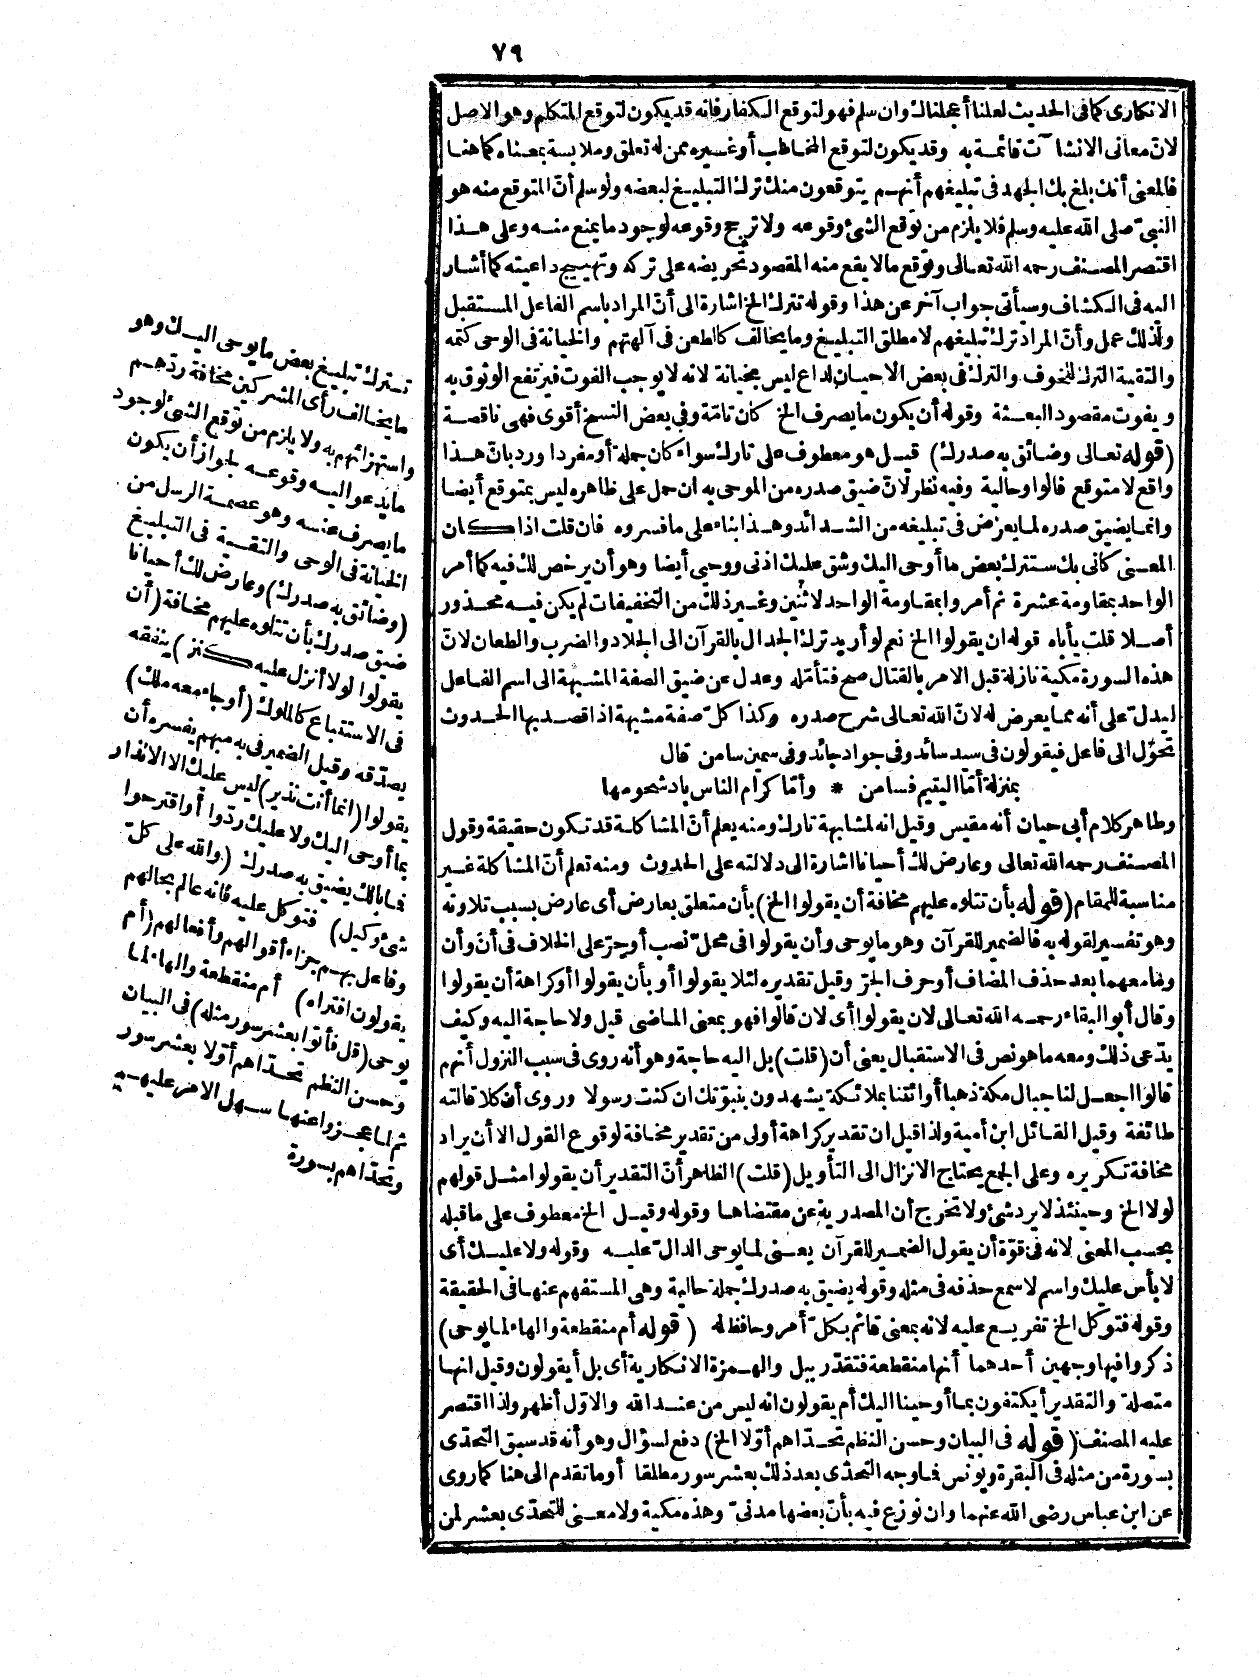 ٧٩
الانكارى كما فى الحديث لعلنا أعجلناك وان سلم فهو لتوقع الكفار فانه قد يكون لتوقع المتكلم وهو الاصل
لانّ معانى الانشا آت قائمة به وقد يكون لتوقع المخاطب أو غيره ممن له تعلق وملابسة بمعناه كما هنا
فالمعنى أنك بلغ بك الجهد فى تبليغهم أنهم يتوقعون منك ترك التبليغ لبعضه ولو سلم أنّ المتوقع منه هو
النبىّ صلى الله عليه وسلم فلا يلزم من توقع الشئ وقوعه ولا ترجح وقوعه لوجود ما يمنع منه وعلى هذا
اقتصر المصنف رحمه الله تعالى وتوقع ما لا يقع منه المقصود تحريضه على تركه وتهييج داعيته كما أشار
اليه فى الكشاف وسيأتى جواب آخر عن هذا وقوله تترك الخ اشارة الى أنّ المراد باسم الفاعل المستقبل
ولذلك عمل وأنّ المراد ترك تبليغهم لا مطلق التبليغ وما يخالف كالطعن فى آلهتهم والخيانة فى الوحى كتمه
والتقية الترك للخوف والترك فى بعض الاحيان لداع ليس بخيانة لانه لا يوجب الفوت فيرتفع الوثوق به
ويفوت مقصود البعثة وقوله أن يكون ما يصرف الخ كان تامّة وفى بعض النسخ أقوى فهى ناقصة
(قوله تعالى وضائق به صدرك) قيل هو معطوف على تارك سواء كان جملة أو مفردا وردبانّ هذا
واقع لا متوقع قالوا وحالية وفيه نظر لانّ ضيق صدره من الموحى به ان حمل على ظاهره ليس بمتوقع أيضا
وانما يضيق صدره لما يعرض فى تبليغه من الشدائد وهذا بناء على ما فسروه فان قلت اذا كان
المعنى كأنى بك ستترك بعض ما أوحى اليك وشق عليك اذنى ووحيى أيضا وهو أن يرخص لك فيه كما أمر
الواحد بمقاومة عشرة ثم أمروا بمقاومة الواحد لاثنين وغير ذلك من التخفيفات لم يكن فيه محذور
أصلا قلت يأباه قوله ان يقولوا الخ نعم لو أريد ترك الجدال بالقرآن الى الجلاد والضرب والطعان لانّ
هذه السورة مكية نازلة قبل الامر بالقتال صح فتأمّله وعدل عن ضيق الصفة المشبهة الى اسم الفاعل
ليدلّ على أنه مما يعرض له لانّ الله تعالى شرح صدره وكذا كلّ صفة مشبهة اذا قصد بها الحدوث
تحوّل الى فاعل فيقولون فى سيد سائد وفى جواد جائد وفى سمين سامن قال
بمنزلة أمّا اليتيم فسامن * وأمّا كرام الناس باد شحومها
وظاهر كلام أبى حيان أنه مقيس وقيل انه لمشابهة تارك ومنه يعلم أنّ المشاكلة قد تكون حقيقة وقول
المصنف رحمه الله تعالى وعارض لك أحيانا اشارة الى دلالته على الحدوث ومنه تعلم أنّ المشاكلة غير
مناسبة للمقام (قوله بأن تتلوه عليهم مخافة أن يقولوا الخ) بأن متعلق بعارض أى عارض بسبب تلاوته
وهو تفسير لقوله به فالضمير للقرآن وهو ما يوحى وأن يقولوا فى محلّ نصب أو جرّ على الخلاف فى أنّ وأن
وما معهما بعد حذف المضاف أو حرف الجرّ وقيل تقديره لئلا يقولوا أو بأن يقولوا أو كراهة أن يقولوا
وقال أبو البقاء رحمه الله تعالى لان يقولوا أى لان قالوا فهو بمعنى الماضى قيل ولا حاجة اليه وكيف
يدّعى ذلك ومعه ما هو نص فى الاستقبال يعنى أن (قلت) بل اليه حاجة وهو أنه روى فى سبب النزول أنهم
قالوا اجعل لنا جبال مكة ذهبا أو ائتنا بملائكة يشهدون بنبوّتك ان كنت رسولا وروى أن كلا قالته
طائفة وقيل القائل ابن أمية ولذا قيل ان تقدير كراهة أولى من تقدير مخافة لوقوع القول الا أن يراد
مخافة تكريره وعلى الجمع يحتاج الانزال الى التأويل (قلت) الظاهر أنّ التقدير أن يقولوا مثل قولهم
لولا الخ وحينئذ لا يرد شئ ولا تخرج أن المصدرية عن مقتضاها وقوله وقيل الخ معطوف على ما قبله
بحسب المعنى لانه فى قوّة أن يقول الضمير للقرآن يعنى لما يوحى الدالّ عليه وقوله ولا عليك أى
لا بأس عليك واسم لا سمع حذفه فى مثله وقوله يضيق به صدرك جملة حالية وهى المستفهم عنها فى الحقيقة
وقوله فتوكل الخ تفريع عليه لانه بمعنى قائم بكلّ أمر وحافظ له (قوله أم منقطعة والهاء لما يوحى)
ذكروا فيها وجهين أحدهما أنها منقطعة فتقدّر ببل والهمزة الانكارية أى بل أيقولون وقيل انها
متصلة والتقدير أيكتفون بما أوحينا اليك أم يقولون انه ليس من عند الله والاوّل أظهر ولذا اقتصر
عليه المصنف (قوله فى البيان وحسن النظم تحدّاهم أوّلا الخ) دفع لسؤال وهو أنه قد سبق التحدّى
بسورة من مثله فى البقرة ويونس فما وجه التحدّى بعد ذلك بعشر سور مطلقا أو ما تقدم الى هنا كما روى
عن ابن عباس رضى الله عنهما وان نوزع فيه بأنّ بعضها مدنىّ وهذه مكية ولا معنى للتحدّى بعشر لمن
تترك تبليغ بعض ما يوحى اليك وهو
ما يخالف رأى المشركين مخافة ردّهم
واستهزائهم به ولا يلزم من توقع الشئ لوجود
ما يدعو اليه وقوعه لجواز أن يكون
ما يصرف عنه وهو عصمة الرسل من
الخيانة فى الوحى والتقية فى التبليغ
(وضائق به صدرك) وعارض لك أحيانا
ضيق صدرك بأن تتلوه عليهم مخافة (أن
يقولوا لولا أنزل عليه كنز) ينفقه
فى الاستتباع كالملوك (أو جاء معه ملك)
يصدّقه وقيل الضمير فى به مبهم يفسره أن
يقولوا (انما أنت نذير) ليس عليك الا الانذار
بما أوحى اليك ولا عليك ردّوا أو اقترحوا
فما بالك يضيق به صدرك (والله على كلّ
شئ وكيل) فتوكل عليه فانه عالم بحالهم
وفاعل بهم جزاء أقوالهم وأفعالهم (أم
يقولون افتراه) أم منقطعة والهاء لما
يوحى (قل فأتوا بعشر سور مثله) فى البيان
وحسن النظم تحدّاهم أوّلا بعشر سور
ثم لما عجزوا عنها سهل الامر عليهم
وتحدّاهم بسورة